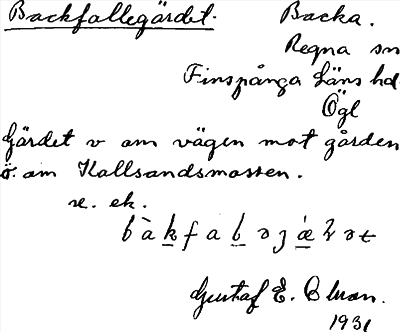 Backfallegärdet. Backa.
Regna sn
Finspånga läns hd
Ögl
Gärdet v om vägen mot gården
ö. om Kallsandsmossen.
se. ek.
Gustaf E.
1931